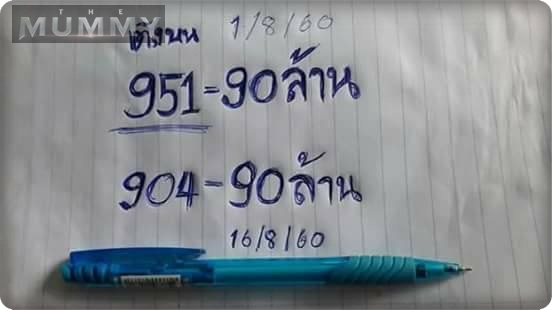 THE
MUMMY
เต็งบน 1/8/60
951=90ล้าน
904-90ล้าน
16/8/60